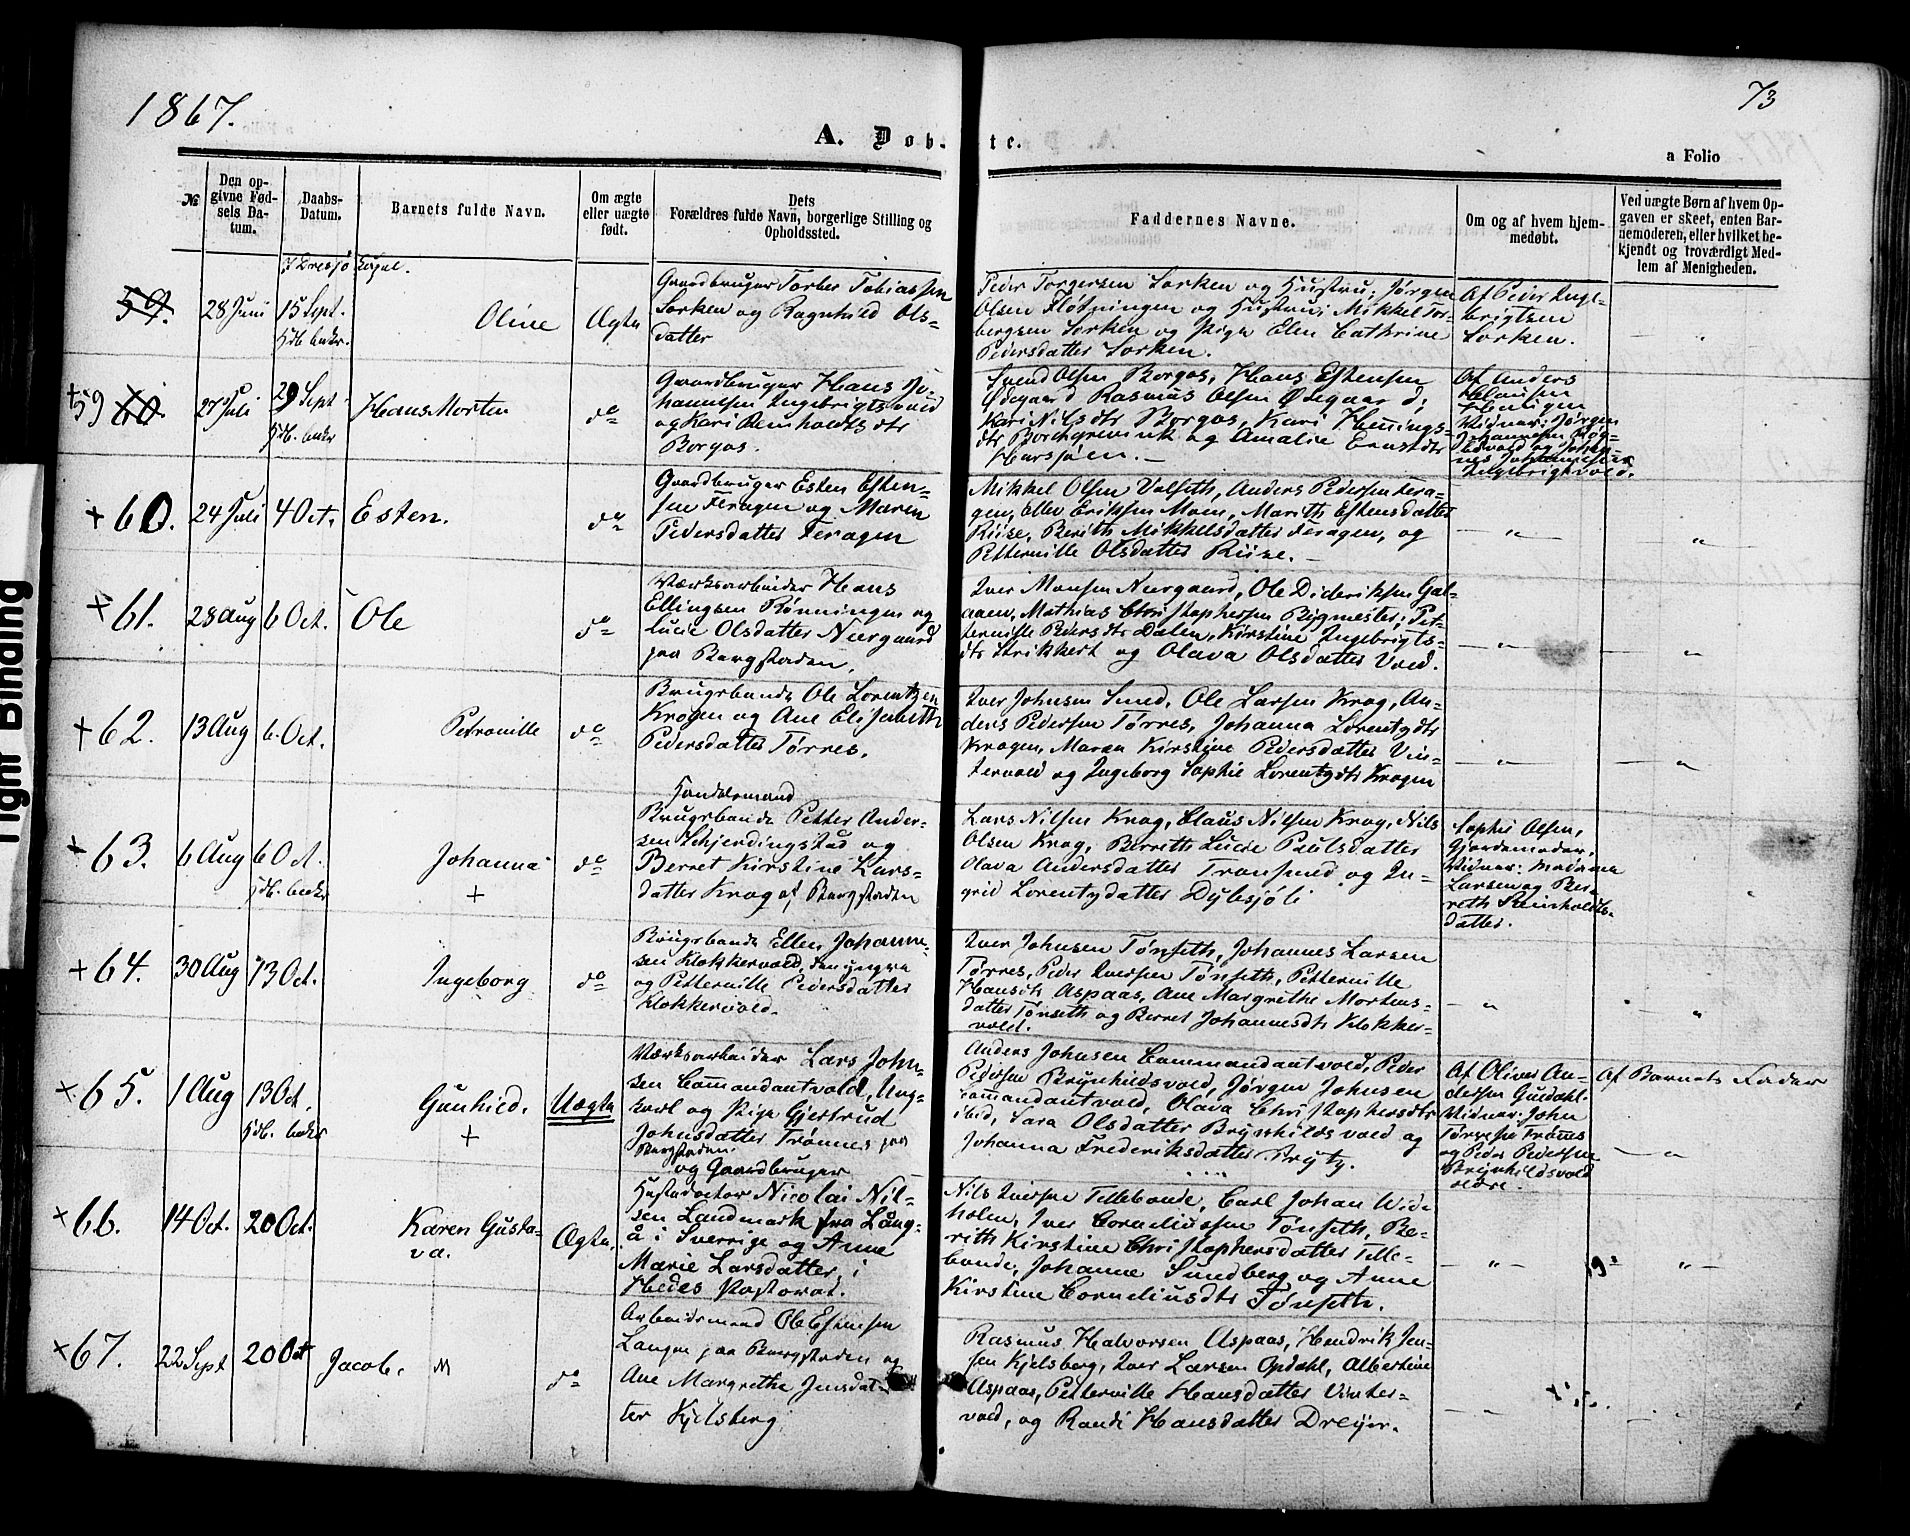 1867.
73
A. Døb- te.
a Folio
№
Den op-
givne Fød-
sels Da-
tum.
Daabs-
Datum.
Barnets fulde Navn.
Om ægte
eller uægte
født.
Dets
Forældres fulde Navn, borgerlige Stilling og
Opholdssted.
Faddernes Navne.
Om og af hvem hjem-
medøbt.
Ved uægte Børn af hvem Op-
gaven er skeet, enten Bar-
nemoderen, eller hvilket be-
kjendt og troværdigt Med-
lem af Menigheden.
59.
28 Juni
15 Sept.
Hdb. bekr.
Oline
Ægte
Gaardbruger Torber Tobiassen
Sorken og Ragnhild Ols-
datter
Peder Torgersen Sorken og Hustru; Jørgen
Olsen Fløtningen og Hustru; Mikkel Tor-
bergsen Sorken og Pige Elen Cathrine
Pedersdatter Sorken.
Af Peder Inge-
brigtsen
Sorken.
+59 60.
27 Juli
29 Sept.
Hdb. bekr
Hans Morten
do
Gaardbruger Hans Jo-
hannesen Ingebrigtsvold
og Kari Reinholdtsdtr
Borgos.
Svend Olsen Borgos, Hans Estensen
Ødegaard Rasmus Olsen Ødegaard;
Kari Nilsdtr Borgos, Kari Hennings-
dtr Borchgrevink og Amalie
Harsjøen.
Af Anders
Vidner: Jørgen
Johannesen
vold og Johan-
nes Johannesen
Ingebrigtsvold.
+ 60.
24 Juli
4 Oct.
Esten.
do
Gaardbruger Esten Esten-
sen Feragen og Maren
Pedersdatter Feragen
Mikkel Olsen Volseth, Anders Pedersen Fera-
gen, Eller Eriksen Moen, Marith Estensdatter
Riise, Berith Mikkelsdatter Feragen, og
Petternille Olsdatter Riise.
+ 61.
28 Aug
6 Oct.
Ole
do
Værksarbeider Hans
Ellingsen Rønningen og
Lucie Olsdatter Neergaard
paa Bergstaden.
Iver Monsen Neergaard, Ole Dideriksen Gal-
aaen, Mathias Christophersen Bygmester; Pet-
ternille Pedersdtr Dalen, Kirstine Ingebrigts-
dtr Strikkert og Olava Olsdatter Vold.
+ 62.
13 Aug
6. Oct.
Petronille
do
Brugsbonde Ole Lorentzen
Krogen og Ane Elisabeth
Pedersdatter Tørres.
Iver Johnsen Smed, Ole Larsen Krog, An-
ders Pedersen Tørres, Johanna Lorentzdtr
Krogen, Maren Kirstine Pedersdatter Vin-
tervold og Ingeborg Sophie Lorentzdtr Krogen
+ 63.
6 Aug
6 Oct.
Hdb. bekr
Johanna
+
do
Handelsmand
Brugsbonde Petter Ander-
sen Schjerdingstad og
Berret Kirstine Lars-
datter Krog af Bergstaden
Lars Nilsen Krog, Claus Nilsen Krog, Nils
Olsen Krog, Berreth Lucie Paulsdatter
Olava Andersdatter Tronsmed og In-
grid Lorentzdatter Dylesjøli
Sophie Olsen,
Gjordemoder,
Vidner:
Larsen og Ber-
reth Reinholdts-
datter.
+ 64.
30 Aug
13 Oct.
Ingeborg
do
Brugsbonde Ellen Johanne-
sen Klokkervold, den yngre
og Petternille Pedersdatter
Klokkervold.
Iver Johnsen Tønseth, Johannes Larsen
Tørres, Peder Iversen Tønseth, Petternille
Aspaas, Ane Margrethe Mortens-
datter Tønseth og Berret Johannesdtr Klokker-
vold.
× 65.
1 Aug
13 Oct.
Hdb. bekr
Gunhild.
+
Uægte
Værksarbeider Lars John-
sen Commandantvold, Ung-
karl og Pige Gjertrud
Johnsdatter Trønnes paa
Bergstaden.
Anders Johnsen Commandantvold, Peder
Pedersen Brynhildsvold, Jørgen Johnsen
Commandantvold, Olava Christophersdtr
ibid, Sara Olsdatter Brynhildsvold og
Johanna Frederiksdatter Prytz.
Af Oliver An-
dersen Guldahl.
Vidner: John
og Peder Pedersen
Brynhildsvold
Af Barnets Fader
× 66.
14 Oct.
20 Oct.
Karen Gusta-
va.
Ægte.
og Gaardbruger
Nicolai Nil-
sen Landmark fra Lång-
å i Sverrige og Anne
Marie Larsdatter, i
Hedes Pastorat.
Nils Iversen Tillebonde, Carl Johan Wid-
holm, Iver Corneliussen Tønseth, Be-
rith Kirstine Christophersdatter Tille-
bonde, Johanne Sundberg og Anne
Kirstine Corneliusdtr Tønseth.
× 67.
22 Sept
20 Oct
Jacob.
do
Arbeidsmand Ole Estensen
Langen paa Bergstaden og
Ane Margrethe Jensdat-
ter Kjelsberg.
Rasmus Halvorsen Aspaas, Hendrik Jen-
sen Kjelsberg, Iver Larsen Opdahl, Albertine
Aspaas, Petternille Hansdatter Vinter-
vold, og Randi Hansdatter Dreyer.
Tight Binding